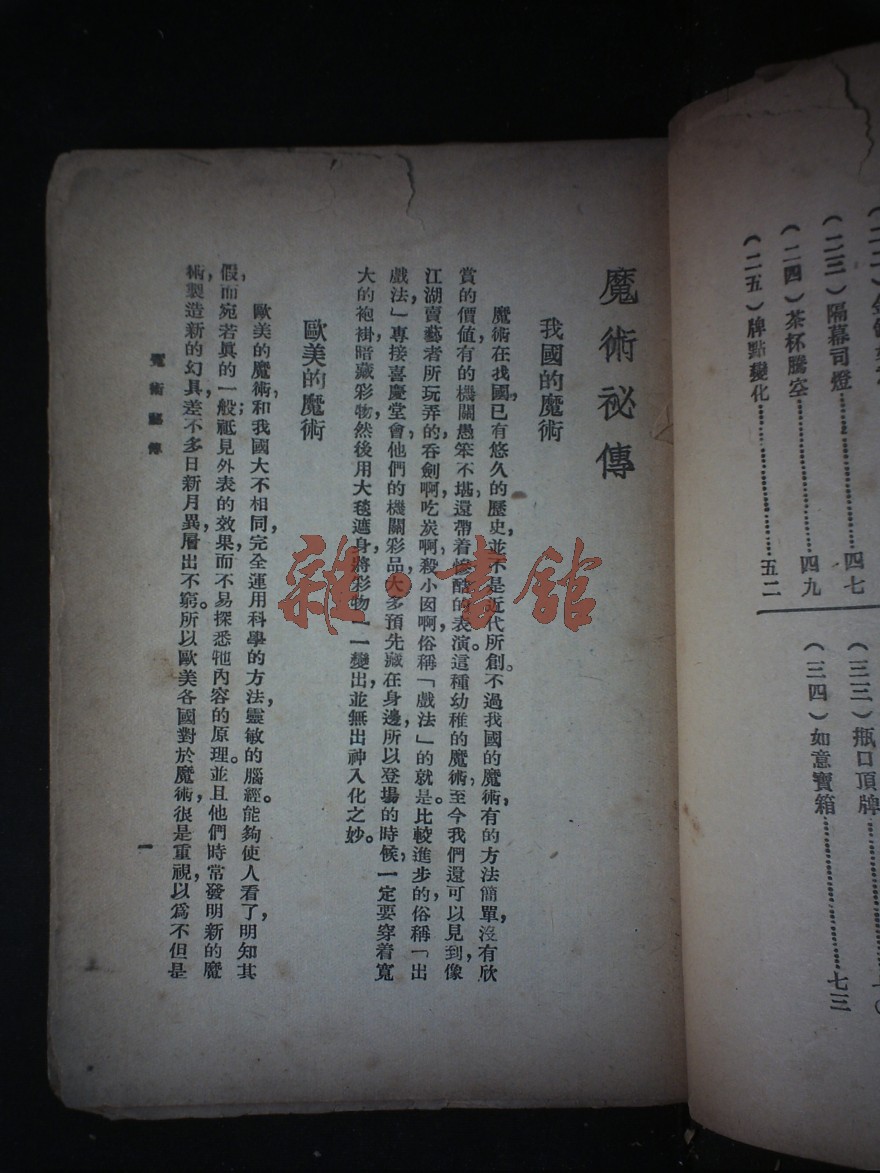 (二三)隔幕司燈……四七
(二四)茶杯騰空……四九
(二五)牌點變化……五二
(三三)瓶口頂牌
(三四)如意寶箱……七三
魔術祕傳
我國的魔術
魔術在我國,已有悠久的歷史,並不是近代所創。不過我國的魔術,有的方法簡單,沒有欣
賞的價值有的機關愚笨不堪,還帶着慘酷的表演。這種幼稚的魔術,至今我們還可以見到,像
江湖賣藝者所玩弄的吞劍啊,吃炭啊,殺小囡啊,俗稱「戲法」的就是。比較進步的俗稱「出
戲法」專接喜慶堂會,他們的機關彩品,大多預先藏在身邊,所以登場的時候,一定要穿着寬
大的袍褂,暗藏彩物,然後用大毯遮身,將彩物一一變出,並無出神入化之妙。
歐美的魔術
歐美的魔術,和我國大不相同,完全運用科學的方法,靈敏的腦經。能夠使人看了,明知其
假,而宛若真的一般;祗見外表的效果,而不易探悉牠內容的原理。並且他們時常發明新的魔
術,製造新的幻具,差不多日新月異,層出不窮。所以歐美各國對於魔術,很是重視,以爲不但是
魔術祕傳
一
雜·書館